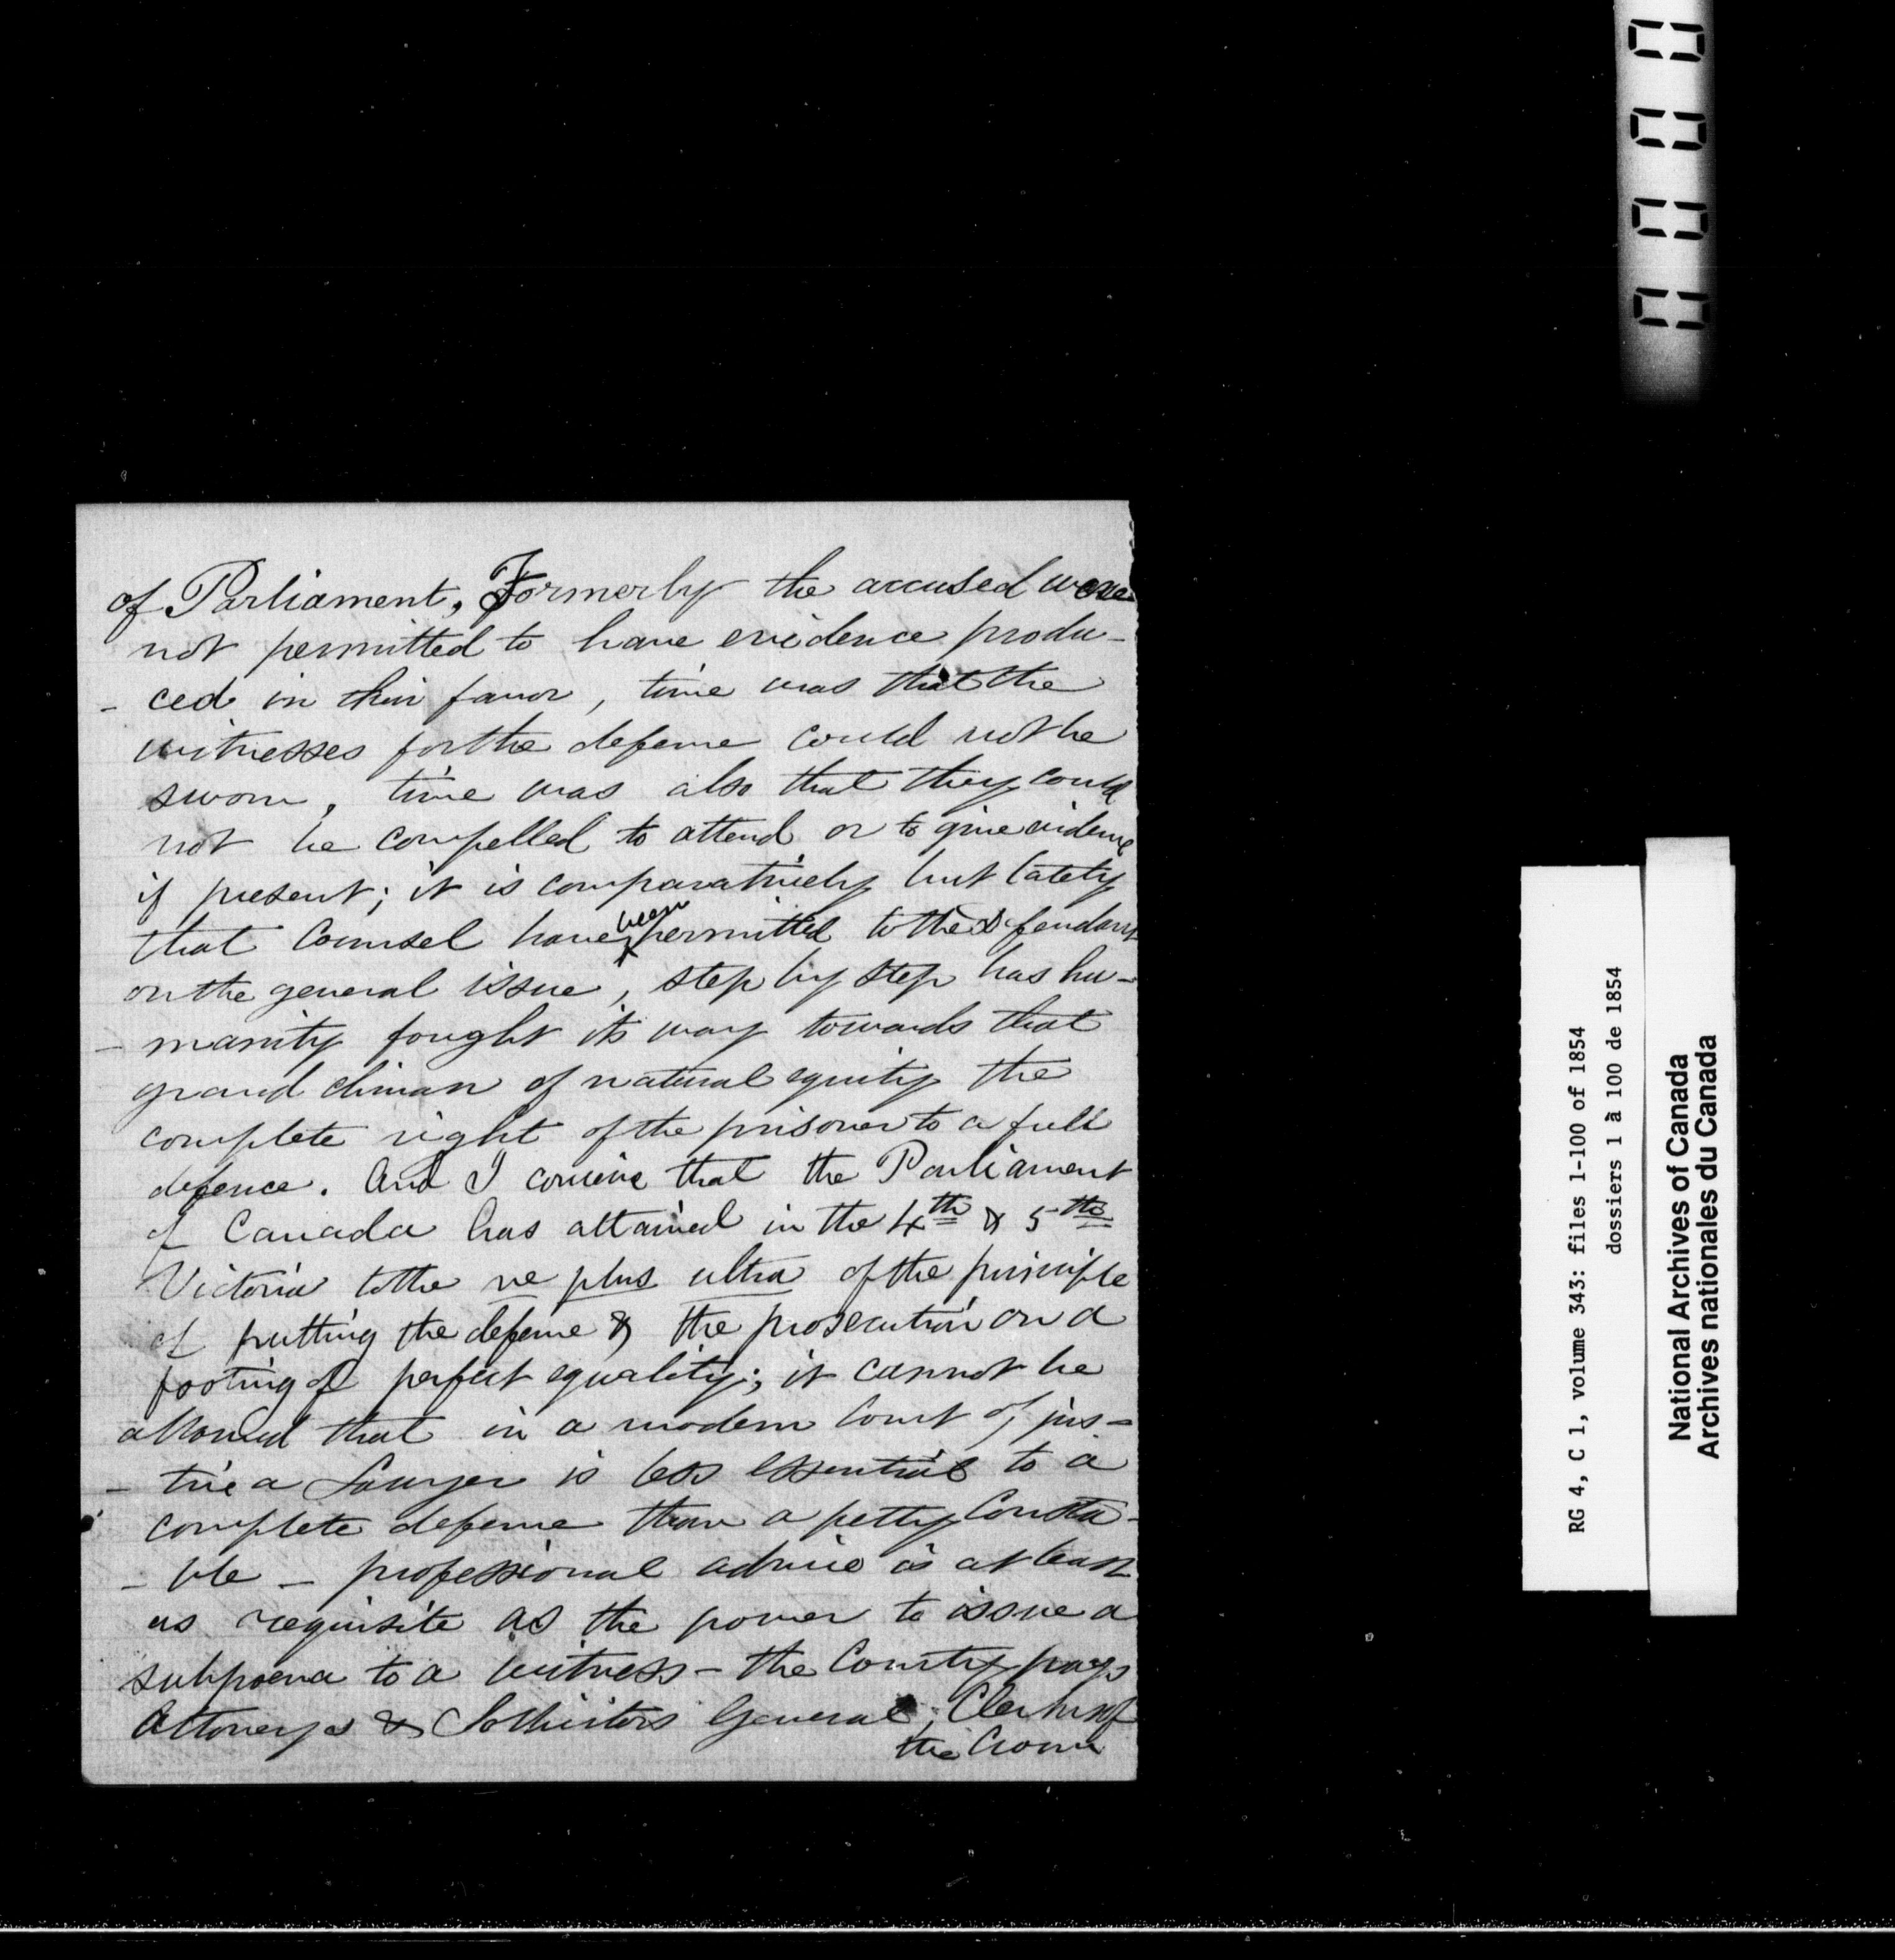 of Parliament, Formerly the accused were
not permitted to have evidence produ-
- ced in their favor, time was that the
witnesses for the defense could not be
sworn, time was also that they could
not be compelled to attend or to give evidence
if present; it is comparatively but lately
that Counsel have been permitted to the defendant
on the general issue, step by step has hu-
- manity fought its way towards that
grand climax of natural equity the
complete right of the prisoner to a full
defence. And I conceive that the Parliament
of Canada has attained in the 4th & 5th
Victoria to the ne plus ultra of the principle
of putting the defense & the prosecution on a
footing of perfect equality; it cannot be
allowed that in a modern Court of jus-
- tice a Lawyer is less essential to a
complete defense than a petty Consta-
- ble - professional advice is at least
as requisite as the power to issue a
subpoena to a witness - the County pays
Attorneys & Sollicitors General, Clerks of
the Crown
0000
RG 4, C 1, volume 343: files 1-100 of 1854
dossiers 1 à 100 de 1854
National Archives of Canada
Archives nationales du Canada